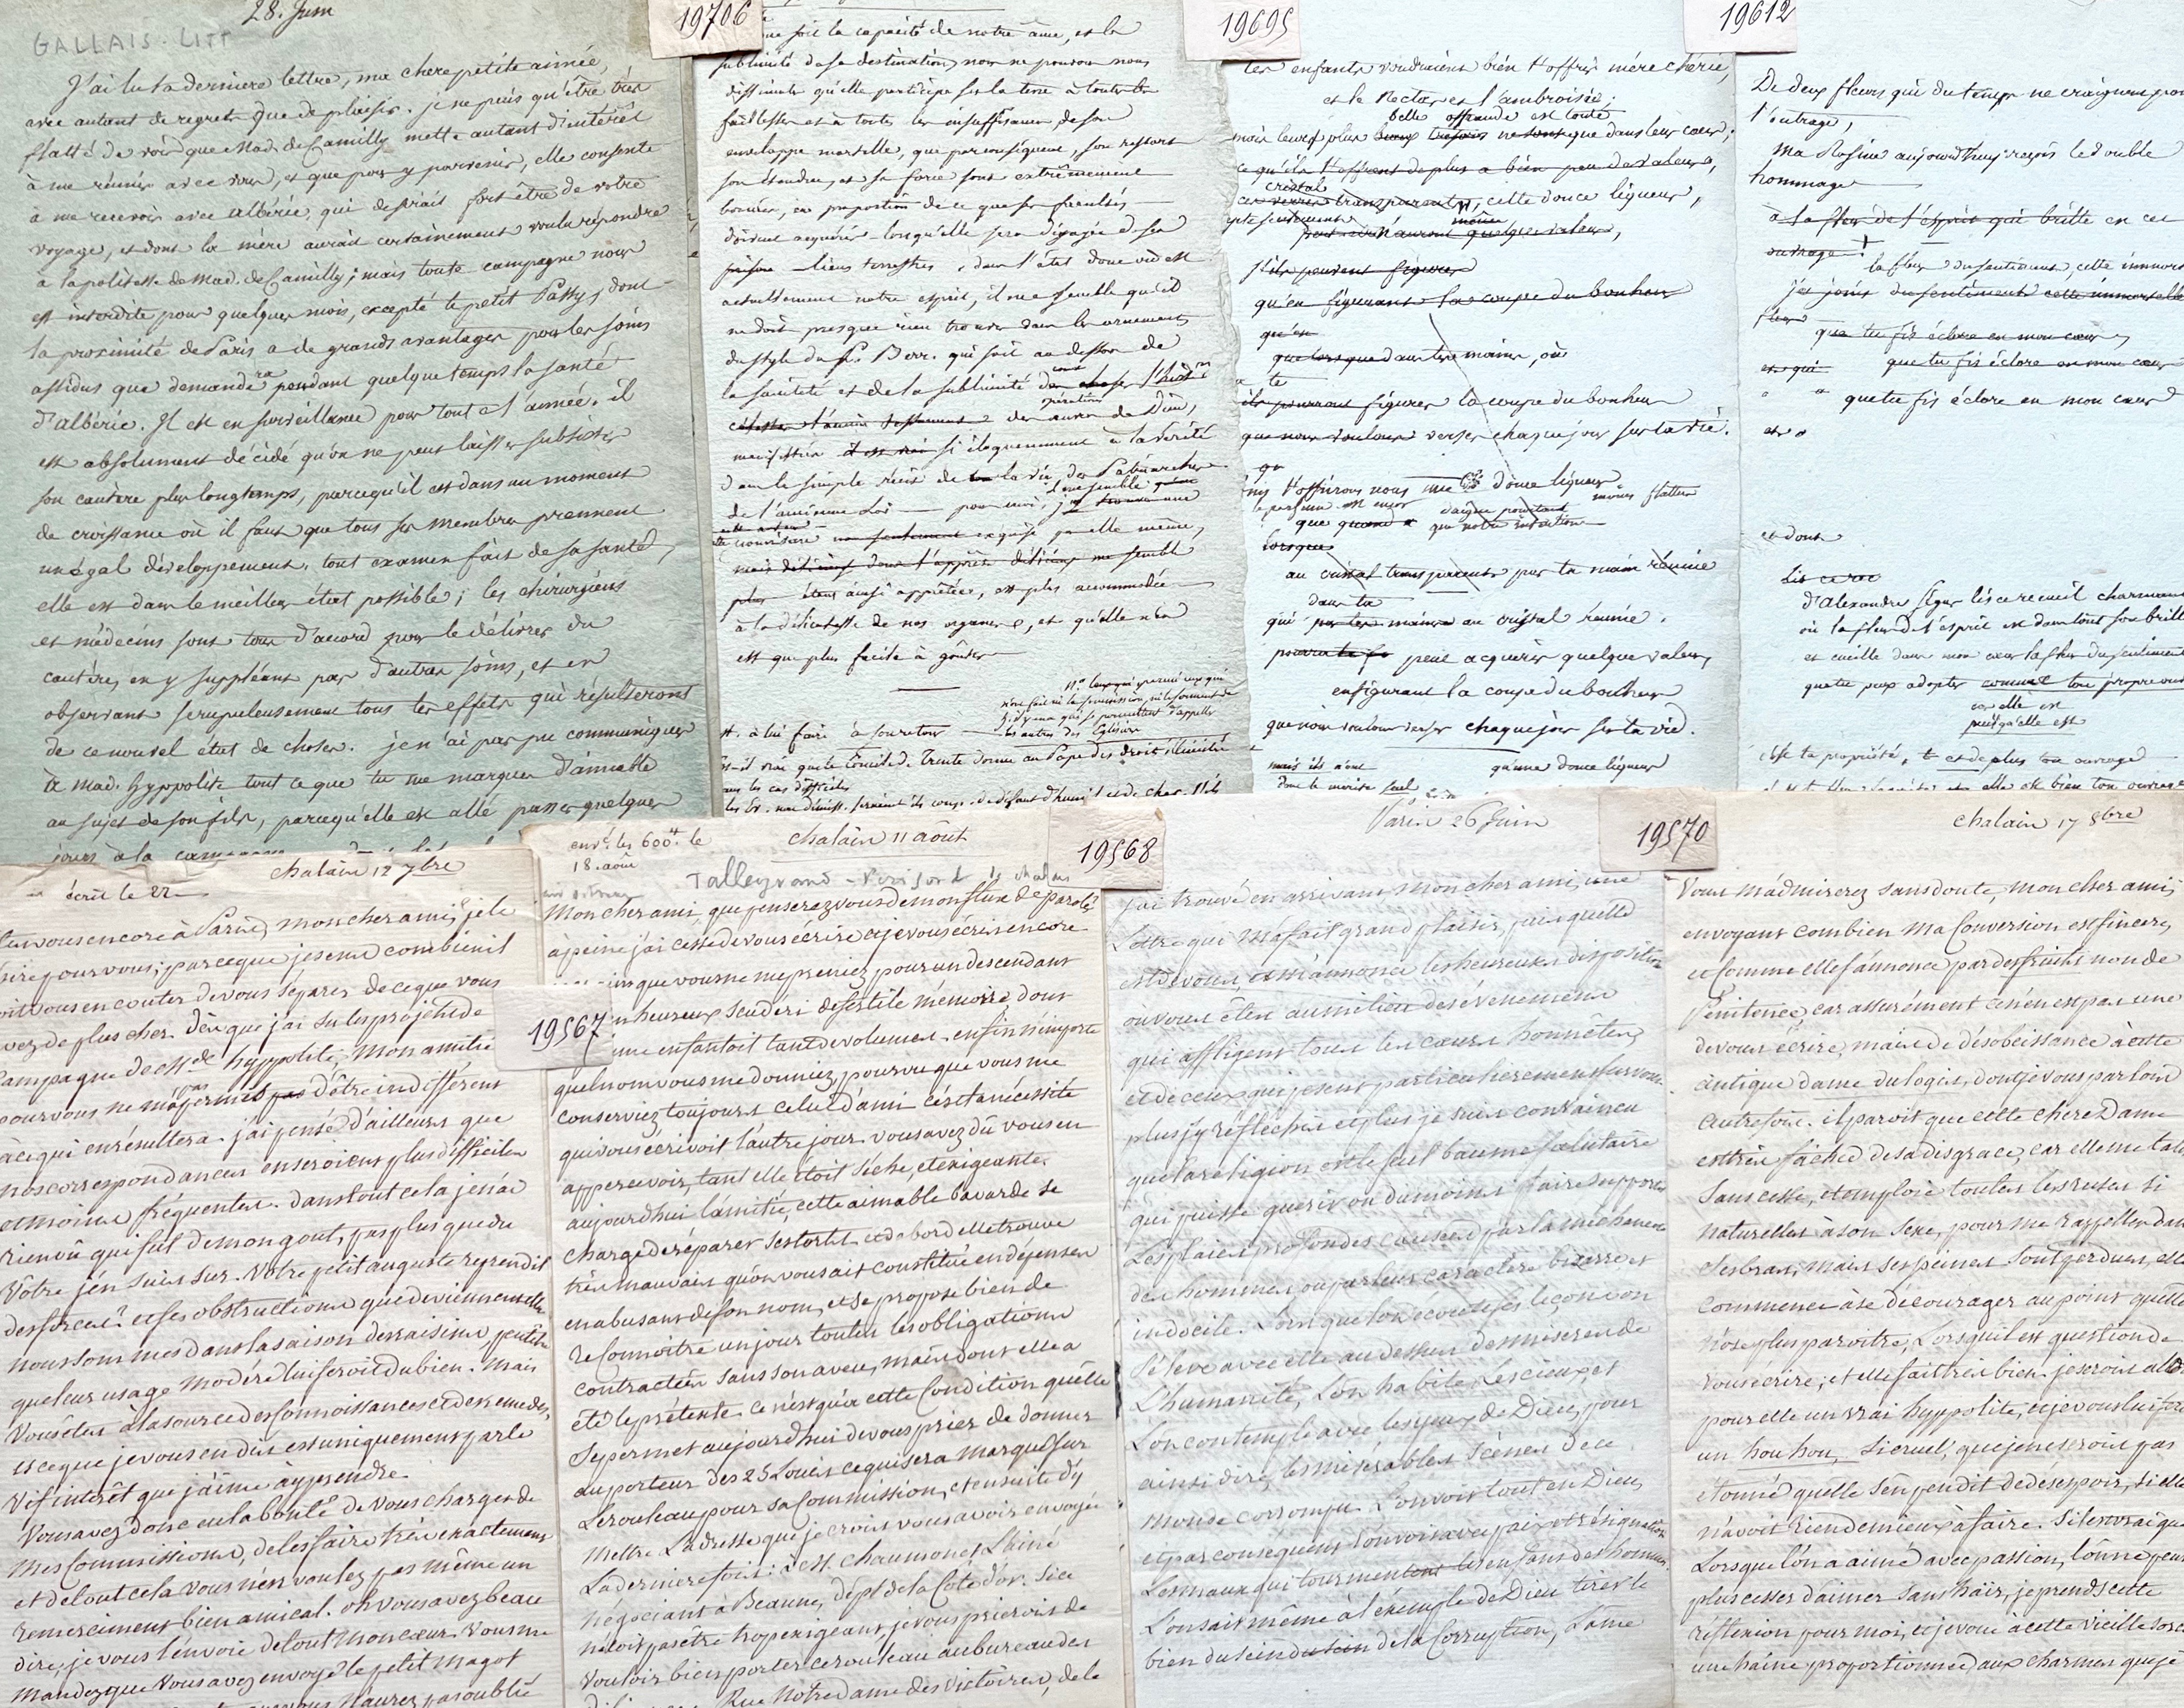 28. Juin
GALLAIS. LITT
J'ai lu ta derniere lettre, ma chere petite aimée,
avec autant de regret que de plaisir. je ne puis qu'être très
flatté de voir que Mad. de Camilly mette autant d'intérêt
à me réunir avec vous, et que pour y parvenir, elle consente
à me recevoir avec albéric, qui desirait fort être de votre
voyage, et dont la mère aurait certainement voulu répondre
à la politesse de Mad. de Camilly; mais toute campagne nous
est interdite pour quelques mois, excepté le petit Passy, dont
la proximité de Paris a de grands avantages pour les soins
assidus que demandera pendant quelque temps la santé
d'albéric. Il est en surveillance pour toute l'année. il
est absolument décidé qu'on ne peut laisser subsister
son cautère plus longtemps, parcequ'il est dans un moment
de croissance où il faut que tous ses membres prennent
un égal développement. tout examen fait de sa santé,
elle est dans le meilleur état possible; les chirurgiens
et médecins sont tous d'accord pour le délivrer du
cautère, en y suppléant par d'autres soins, et en
observant scrupuleusement tous les effets qui résulteront
de ce nouvel état de choses. je n'ai pas pu communiquer
à Mad. hyppolite tout ce que tu me marques d'aimable
au sujet de son fils, parcequ'elle est allé passer quelques
jours à la campagne
19706
soit la capacité de notre âme, et la
sublimité de sa destination, nous ne pouvons nous
dissimuler qu'elle participe sur la terre à toutes les
faiblesses et à toutes les insuffisances de son
enveloppe mortelle, que par conséquent, son ressort
son étendue, et sa force sont extrêmement
bornés, en proportion de ce que ses facultés
doivent acquérir lorsqu'elle sera dégagée de ses
liens terrestres. dans l'état donc où est
actuellement notre esprit, il me semble qu'il
ne doit presque rien trouver dans les ornements
du style du P. Berr. qui soit au dessous de
la sainteté et de la sublimité
des œuvres de Dieu,
si éloquemment à la vérité
dans le simple récit de la vie des Patriarches
de l'ancienne Loi pour moi,
nourriture exquise par elle même,
étant ainsi apprêtée, est plus accommodée
à la délicatesse de nos organes, et qu'elle n'en
est que plus facile à goûter
à lui faire à souretour
Est-il vrai que le Concile de Trente donne au Pape des droits illimités
dans les cas difficiles
19695
tes enfants voudraient bien t'offrir mère chérie,
et le Nectar et l'ambroisie;
belle offrande est toute
mais leurs plus beaux tresors ne sont que dans leur cœur;
ce qu'ils t'offrent de plus a bien peu de valeur,
cristal
ces verres transparents, cette douce liqueur,
même
n'auront quelque valeur,
s'ils peuvent figurer
qu'en figurant la coupe du bonheur
qu'en
que lorsque dans tes mains, où
te
ils pourront figurer la coupe du bonheur
que nous voulons verser chaque jour sur ta vie.
t'offrirons nous une douce liqueur
daigne pourtant
que notre intention
lorsque
au cristal transparent par ta main réunie
dans ta
qui par tes mains au cristal réunie.
peut acquérir quelque valeur,
en figurant la coupe du bonheur
que nous voulons verser chaque jour sur ta vie.
qu'une douce liqueur
dont le mérite seul
19612
De deux fleurs qui du temps ne craignent pas
l'outrage,
Ma Rosine aujourdhuy reçois le double
hommage
à la fleur de l'esprit qui brille en cet
ouvrage
la fleur du sentiment, cette immortelle
je joins du sentiment cette immortelle
fleur
que tu fis éclore en mon cœur,
et qui que tu fis éclore en mon cœur
que tu fis éclore en mon cœur
et dont
d'Alexandre Segur lis ce recueil charmant
où la fleur de l'esprit est dans tout son brillant
et cueille dans mon cœur la fleur du sentiment
que tu peux adopter comme ton propre ouvrage
car elle est
puisqu'elle est
elle est bien ton ouvrage
chalain 12 7bre
écrit le 22
vous encore à Paris, mon cher ami, je le
desire pour vous; parceque je sens combien il
doit vous en couter de vous séparer de ce que vous
avez de plus cher. Dès que j'ai su les projets de
campagne de Mde hyppolite, Mon amitié
pour vous ne m'a pas permis pas d'être indifférent
à ce qui en résultera. j'ai pensé d'ailleurs que
nos correspondances en seroient plus difficiles
et moins fréquentes. dans tout cela je n'ai
rien vû qui fut de mon gout, pas plus que du
Vôtre j'en suis sur. Votre petit auguste reprend il
des forces? et ses obstructions que deviennent elles
nous sommes dans la saison des raisins, peut être
que leur usage modéré lui feroit du bien. Mais
Vous êtes à la source des connoissances et des remedes,
et ce que je vous en dis est uniquement par le
Vif intérêt que j'aime à y prendre.
Vous avez donc eu la bonté de vous charger de
Mes Commissions, de les faire très exactement
et de tout cela vous n'en voulez pas même un
remerciment bien amical. oh vous avez beau
dire, je vous l'envoie de tout mon cœur. Vous me
mandez que vous avez envoyé le petit Magot
19567
envé. les 600# le
18. août
chalain 11 août
Talleyrand-Perigord
19568
Mon cher ami, que penserez vous de mon flux de paroles
à peine j'ai cessé de vous écrire et je vous écris encore
que vous ne me preniez pour un descendant
heureux scuderi de fertile mémoire dont
enfantoit tant de volumes. enfin n'importe
quel nom vous me donniez, pourvu que vous me
conserviez toujours celui d'ami c'est la nécessité
qui vous écrivoit l'autre jour. vous avez dû vous en
appercevoir, tant elle étoit séche, et éxigeante.
aujourdhui l'amitié, cette aimable bavarde se
charge de réparer ses torts. et d'abord elle trouve
très mauvais qu'on vous ait constitué en dépenses
en abusant de son nom, et se propose bien de
reconnoitre un jour toutes les obligations
contractées sans son aveu, mais dont elle a
été le prétexte. ce n'est qu'à cette condition qu'elle
se permet aujourdhui de vous prier de donner
au porteur des 25 Louis ce qui sera marqué sur
le rouleau pour sa commission, et ensuite d'y
mettre L'adresse que je crois vous avoir envoyée
La derniere fois: à M. chaumonet L'ainé
négociant à Beaune, dépt de la Cote d'or. si ce
n'étoit pas être trop exigeant, je vous prierois de
vouloir bien porter ce rouleau au bureau des
Rue Notre Dame des Victoires, de la
Paris 26 Juin
19570
J'ai trouvé en arrivant, mon cher ami, une
Lettre qui m'a fait grand plaisir, puisqu'elle
est de vous, et m'annonce les heureuses dispositions
où vous êtes au milieu des évenemens
qui affligent tous les cœurs honnêtes,
et de ceux qui pesent particulierement sur vous
plus j'y réfléchis et plus je suis convaincu
que la religion est le seul baume salutaire
qui puisse guérir ou du moins faire supporter
les plaies profondes causées par la méchanceté
des hommes ou par leur caractère bizarre et
indocile. Lorsque l'on écoute ses leçons on
s'éleve avec elle au dessus des miseres de
L'humanité, L'on habite les cieux et
L'on contemple avec les yeux de Dieu, pour
ainsi dire, les misérables scènes de ce
monde corrompu. L'on voit tout en Dieu,
et par conséquent L'on voit avec paix et résignation
Les maux qui tourmentent les enfans des hommes.
L'on sait même à l'éxemple de Dieu tirer le
bien du sein du sein de la Corruption, L'ame
chalain 17 8bre
Vous m'admirerez sans doute, mon cher ami,
en voyant combien ma Conversion est sincere,
et comme elle s'annonce par des fruits non de
Pénitence, car assurément ce n'en est pas une
de vous écrire, mais de désobéissance à cette
antique dame du logis, dont je vous parlois
autrefois. il paroit que cette chere Dame
est très fâchée de sa disgrace, car elle me tate
sans cesse, et emploie toutes les ruses si
naturelles à son sexe, pour me rappeller dans
ses bras, mais ses peines sont perdues, elle
commence à se décourager au point qu'elle
n'ose plus paroitre, lorsqu'il est question de
vous écrire; et elle fait très bien. je serois alors
pour elle un vrai hyppolite, et je vous lui ferois
un hou hou, si cruel, que je ne serois pas
étonné qu'elle s'en pendit de désespoir, si elle
n'avoit rien de mieux à faire. s'il est vrai que
Lorsque l'on a aimé avec passion, l'on ne peut
plus cesser d'aimer sans haïr, je prends cette
réflexion pour moi, et je voue à cette vieille sorciere
une haine proportionnée aux charmes que je